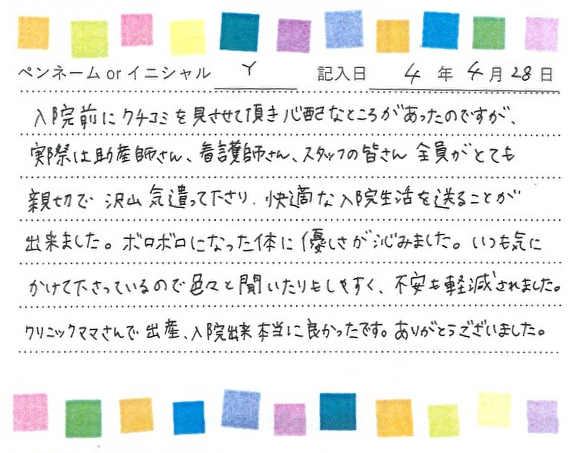 ペンネーム or イニシャル Y 記入日 4 年 4 月 28 日
入院前にクチコミを見させて頂き心配なところがあったのですが、
実際は助産師さん、看護師さん、スタッフの皆さん 全員がとても
親切で 沢山 気遣って下さり、快適な入院生活を送ることが
出来ました。ボロボロになった体に優しさが沁みました。いつも気に
かけて下さっているので色々と聞いたりもしやすく、不安も軽減されました。
クリニックママさんで出産、入院出来本当に良かったです。ありがとうございました。